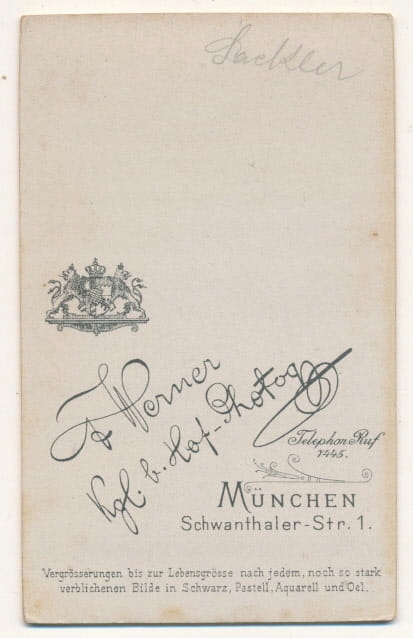 Sackler
F Werner
Kgl. b. Hof-Photog
Telephon Ruf
7445.
MÜNCHEN
Schwanthaler-Str. 1.
Vergrösserungen bis zur Lebensgrösse nach jedem, noch so stark
verblichenen Bilde in Schwarz, Pastell, Aquarell und Oel.